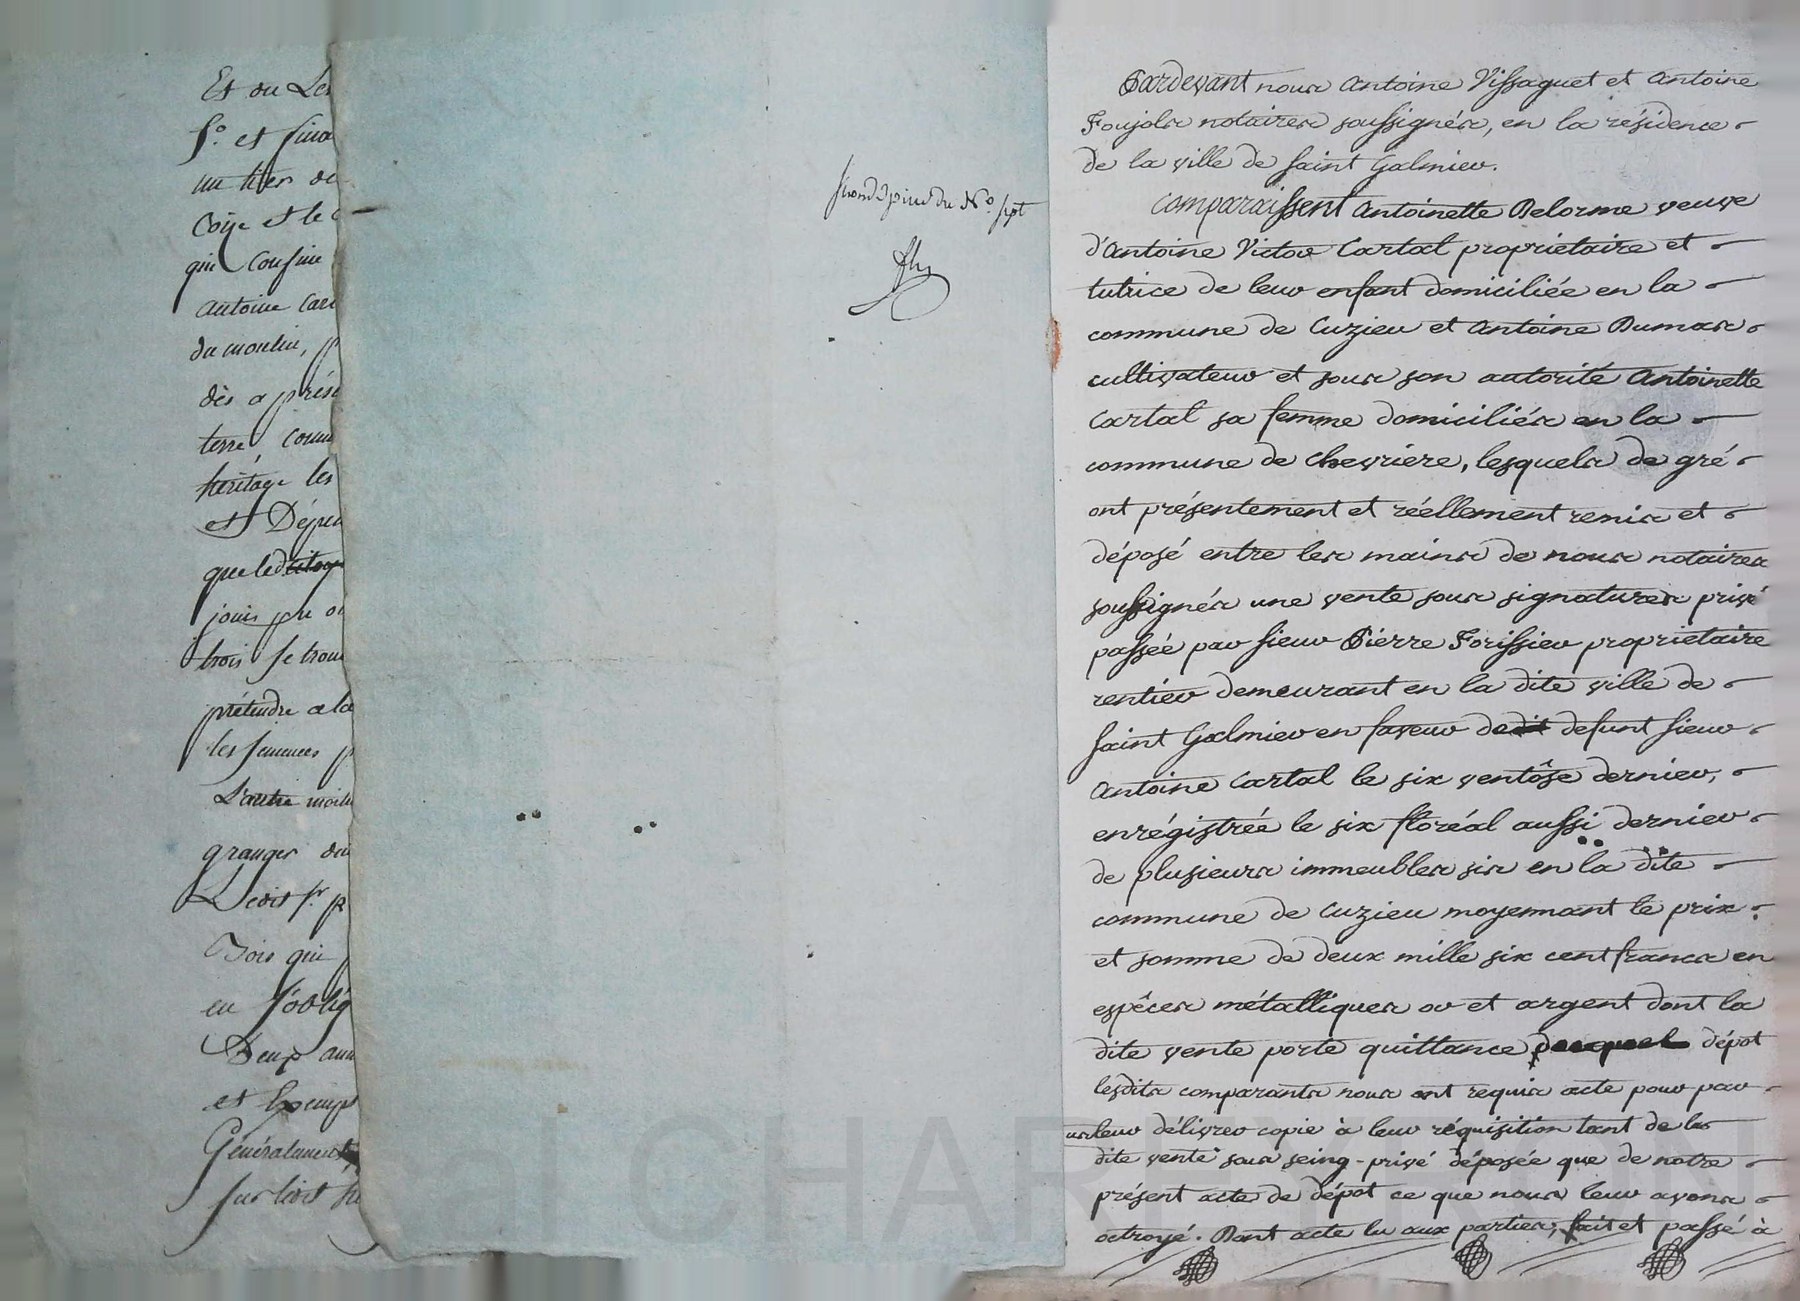 Et ou Les
Sr. et
un tiers de
Coije et le
qui Cousine
antoine Cart
du moulin, p
dès a prése
terre, comm
héritage les
et Dépen
que led
jouis
trois se trou
prétendre a la
les semences p
L'autre moitié
granges du
Ledit Sr. p
Bois qui
en s'oblig
Deux ann
et
Généralement
sur ledit
second pièce du No. sept
Pardevant nous Antoine Vissaguet et Antoine
Foujols notaires soussignés, en la résidence
de la ville de saint Galmier.
Comparaissent Antoinette Delorme veuve
d'Antoine Victor Cartal proprietaire et
tutrice de leur enfant domiciliée en la
commune de Cuzieu et Antoine Dumas
cultivateur et sous son autorité Antoinette
Cartal sa femme domiciliés en la
commune de Chevriere, lesquels de gré
ont présentement et réellement remis et
déposé entre les mains de nous notaires
soussignés une vente sous signatures privé
passée par sieur Pierre Forissier proprietaire
rentier demeurant en la dite ville de
saint Galmier en faveur dedit defunt sieur
Antoine Cartal le six ventôse dernier,
enrégistrée le six floréal aussi dernier
de plusieurs immeubles sis en la dite
commune de Cuzieu moyennant le prix
et somme de deux mille six cent francs en
espêces métalliques or et argent dont la
dite vente porte quittance dépôt
lesdits comparants nous ont requis acte pour par
leur délivrer copie à leur réquisition tant de la
dite vente sous seing-privé déposée que de notre
présent acte de dépôt ce que nous leur avons
octroyé. Dont acte lu aux parties, fait et passé à